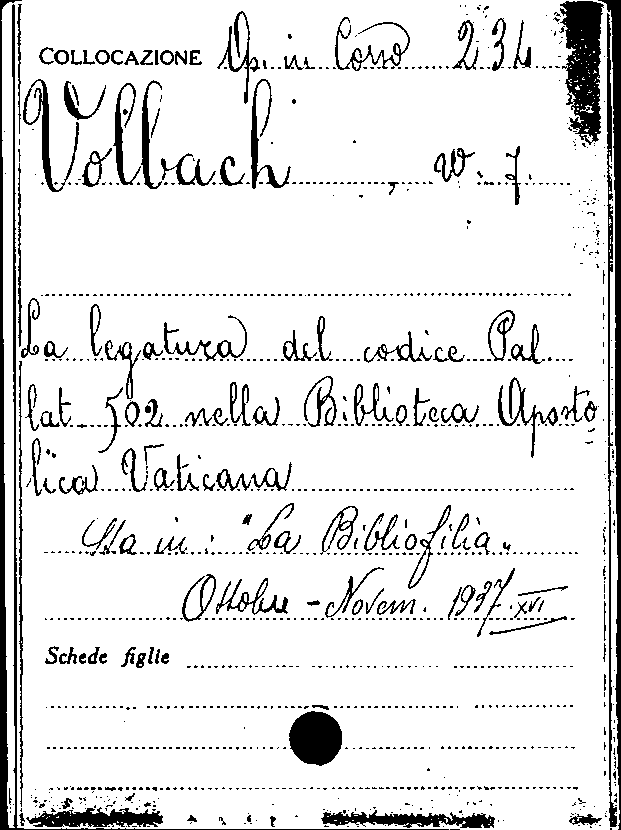 COLLOCAZIONE Op. in Corso 234
Volbach, W. F.
La legatura del codice Pal.
lat. 502 nella Biblioteca Aposto
lica Vaticana
Sta in: "La Bibliofilia„
Ottobre - Novem. 1937. XVI
Schede figlie